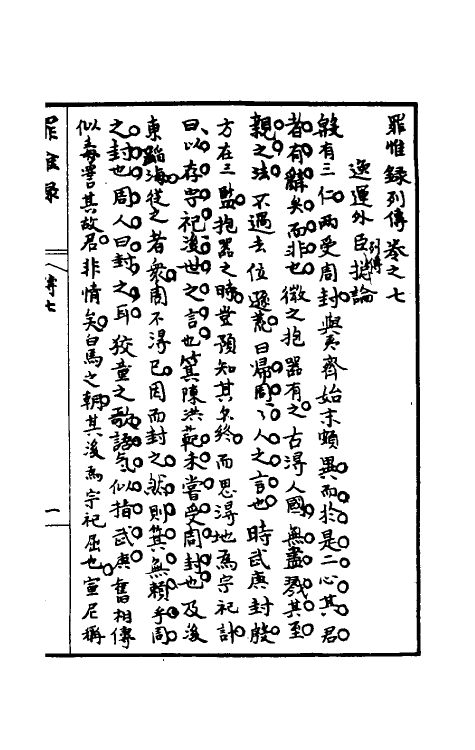 罪惟錄列傳卷之七
逸運外臣列傳總論
殷有三仁兩受周封與夷齊始末頗異而於是二心其君
者有辭矣而非也微之抱器有之古得人國無盡戮其至
親之法不過去位遜荒曰歸周周人之言也時武庚封殷
方在三監抱器之時豈預知其不終而思得地為宗祀計
曰以存宗祀後世之言也箕陳洪範未嘗受周封也及後
東蹈海從之者衆周不得已因而封之然則箕無賴乎周
之封也周人曰封之耳狡童之歌語氣似指武庚舊相傳
似毒詈其故君非情矣白馬之朝其後為宗祀屈也宣尼稱
罪惟錄
傳七
一